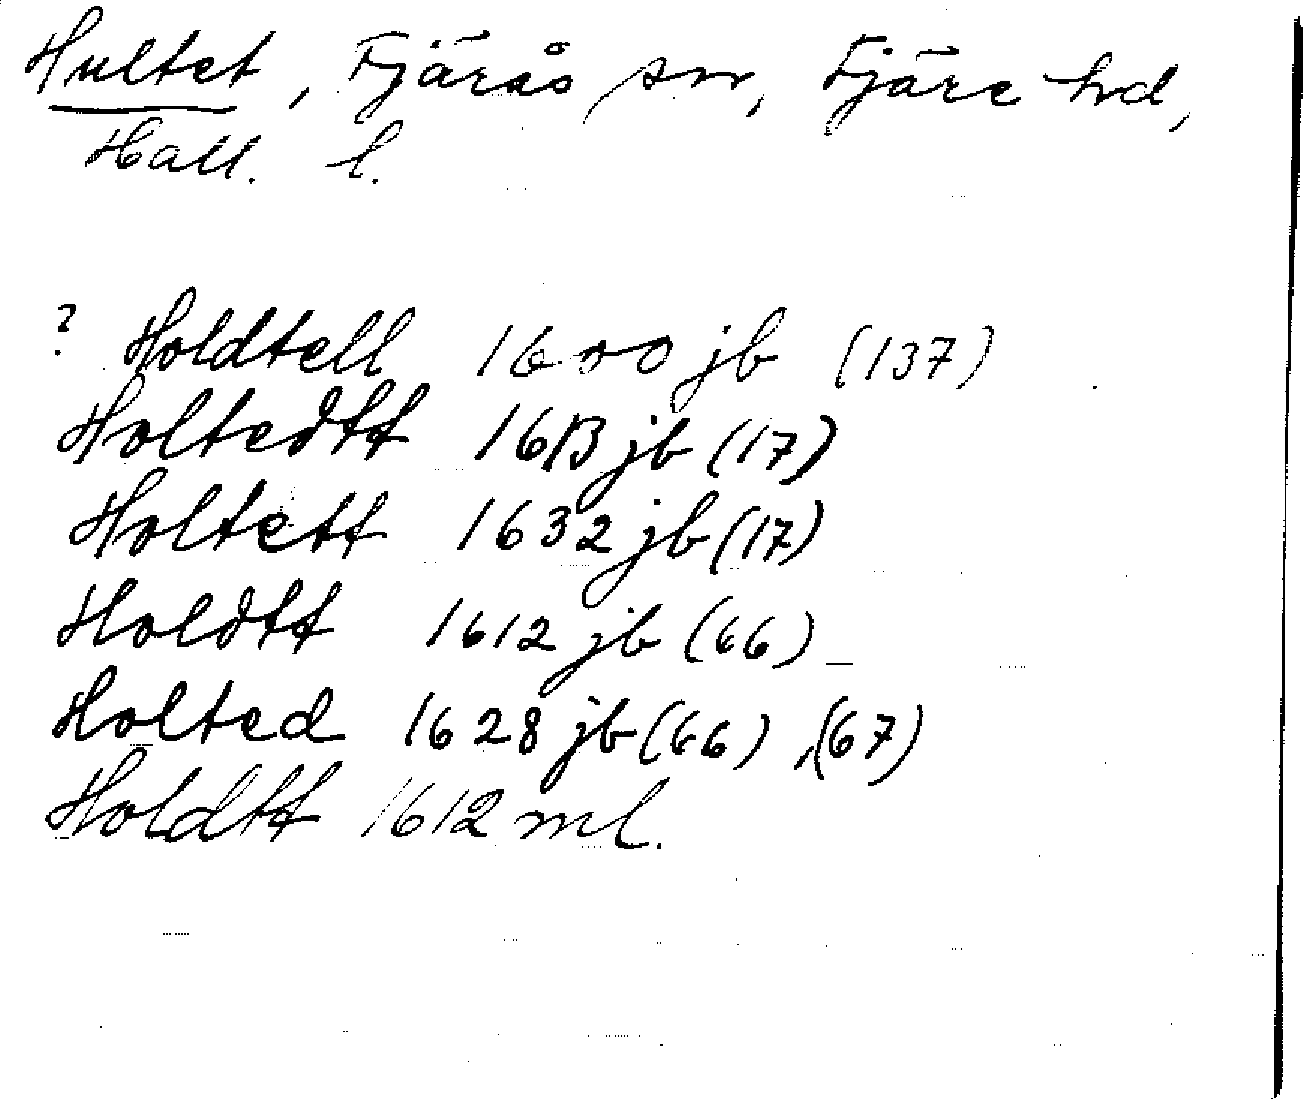 Hultet, Fjärås sn, Fjäre hd,
Hall. l.
? Holdtell 1600 jb (137)
Holtedtt 1613 jb (17)
Holtett 1632 jb (17)
Holdtt 1612 jb (66)
Holted 1628 jb (66), (67)
Holdtt 1612 ml.